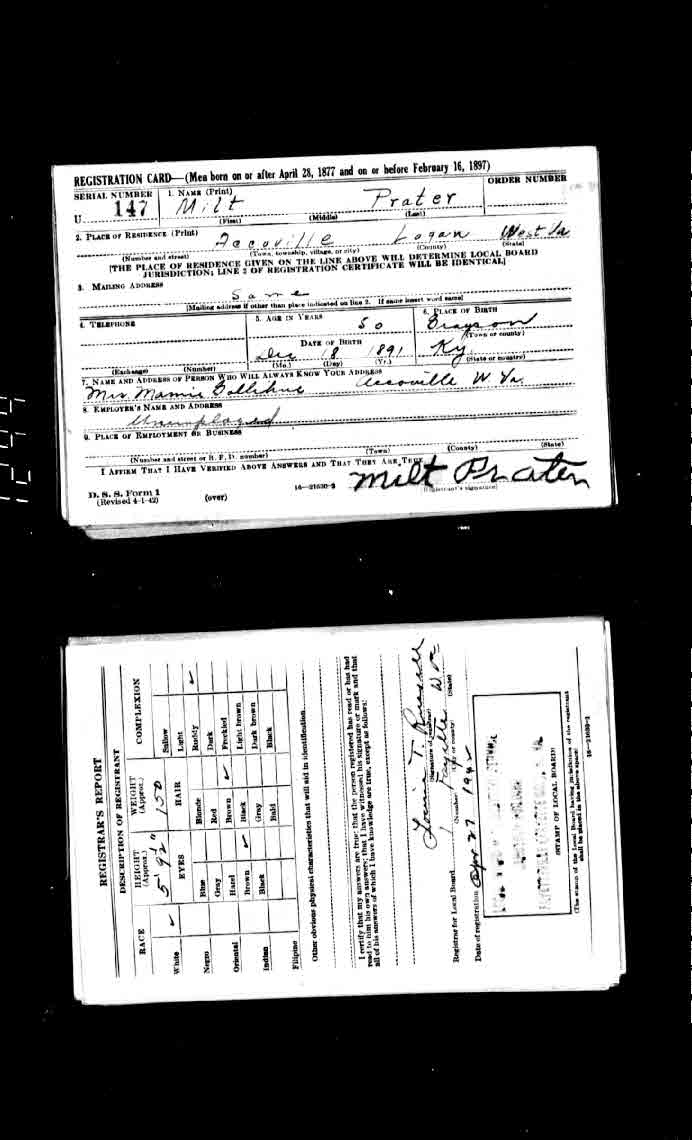 REGISTRATION CARD—(Men born on or after April 28, 1877 and on or before February 16, 1897)
SERIAL NUMBER 1. NAME (Print) ORDER NUMBER
U 147 Milt Prater
(First) (Middle) (Last)
2. PLACE OF RESIDENCE (Print)
Accoville Logan West Va
(Number and street) (Town, township, village, or city) (County) (State)
[THE PLACE OF RESIDENCE GIVEN ON THE LINE ABOVE WILL DETERMINE LOCAL BOARD
JURISDICTION; LINE 2 OF REGISTRATION CERTIFICATE WILL BE IDENTICAL]
3. MAILING ADDRESS
Same
[Mailing address if other than place indicated on line 2. If same insert word same]
4. TELEPHONE 5. AGE IN YEARS 6. PLACE OF BIRTH
50 Grayson
DATE OF BIRTH (Town or county)
Dec 18 1891 Ky.
(Exchange) (Number) (Mo.) (Day) (Yr.) (State or country)
7. NAME AND ADDRESS OF PERSON WHO WILL ALWAYS KNOW YOUR ADDRESS
Mrs. Mamie Accoville W Va.
8. EMPLOYER'S NAME AND ADDRESS
Unemployed
9. PLACE OF EMPLOYMENT OR BUSINESS
(Number and street or R. F. D. number) (Town) (County) (State)
I AFFIRM THAT I HAVE VERIFIED ABOVE ANSWERS AND THAT THEY ARE TRUE.
D. S. S. Form 1
(Revised 4-1-42) (over) 16—21630-2 Milt Prater
(Registrant's signature)
REGISTRAR'S REPORT
DESCRIPTION OF REGISTRANT
RACE HEIGHT (Approx.) WEIGHT (Approx.) COMPLEXION
5' 9½" 150
White ✓ EYES HAIR Sallow
Light
Negro Blue Blonde Ruddy ✓
Gray Red Dark
Oriental Hazel Brown ✓ Freckled
Brown ✓ Black Light brown
Indian Black Gray Dark brown
Bald Black
Filipino
Other obvious physical characteristics that will aid in identification
I certify that my answers are true; that the person registered has read or has had
read to him his own answers; that I have witnessed his signature or mark and that
all of his answers of which I have knowledge are true, except as follows:
Louis T. Russell
(Signature of registrar)
Registrar for Local Board 1 Fayette W Va
(Number) (City or county) (State)
Date of registration Apr 27 1942
(STAMP OF LOCAL BOARD)
(The stamp of the Local Board having jurisdiction of the registrant
shall be placed in the above space)
16—21630-2